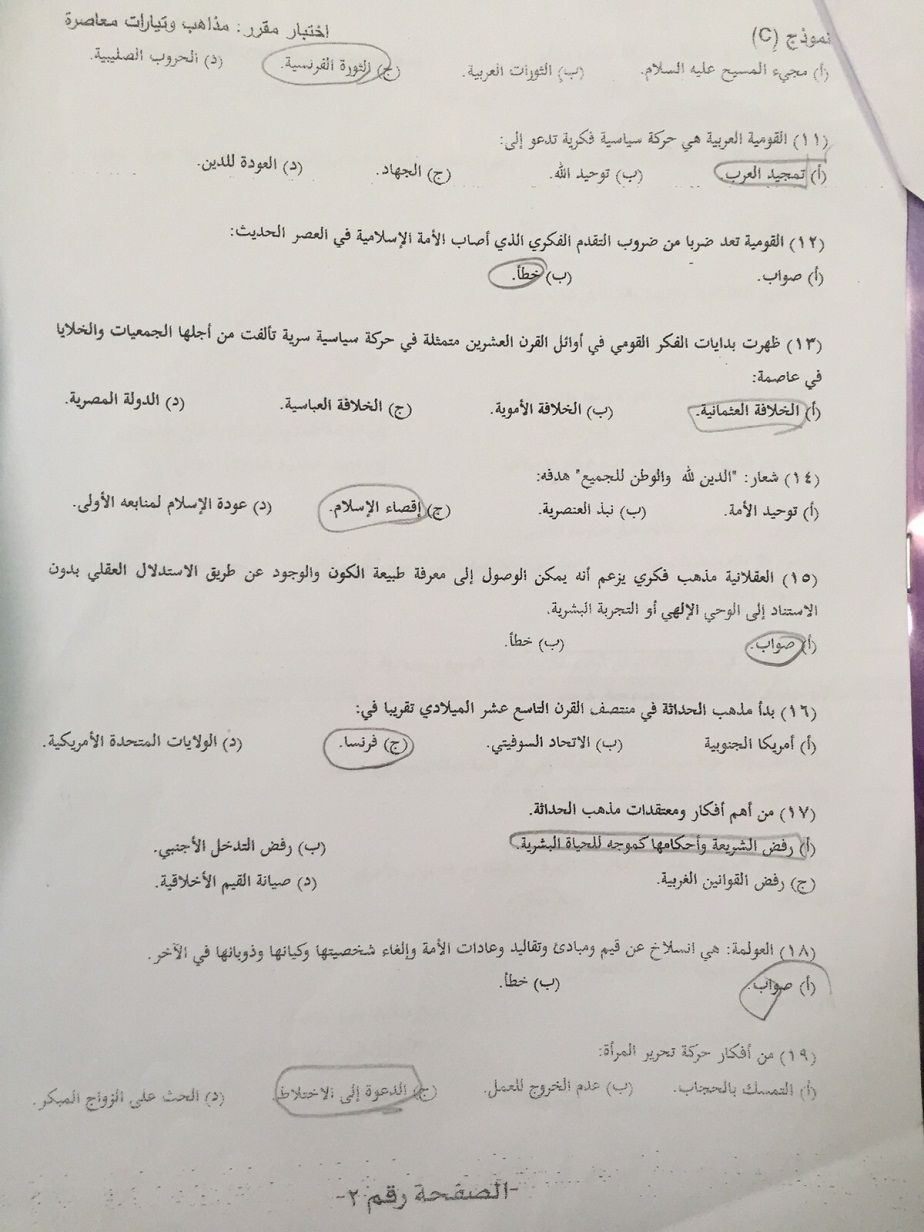 نموذج (C) اختبار مقرر: مذاهب وتيارات معاصرة
(أ) مجيء المسيح عليه السلام. (ب) الثورات العربية. (ج) الثورة الفرنسية. (د) الحروب الصليبية.
(١١) القومية العربية هي حركة سياسية فكرية تدعو إلى:
(أ) تمجيد العرب. (ب) توحيد الله. (ج) الجهاد. (د) العودة للدين.
(١٢) القومية تعد ضربا من ضروب التقدم الفكري الذي أصاب الأمة الإسلامية في العصر الحديث:
(أ) صواب. (ب) خطأ.
(١٣) ظهرت بدايات الفكر القومي في أوائل القرن العشرين متمثلة في حركة سياسية سرية تألفت من أجلها الجمعيات والخلايا
في عاصمة:
(أ) الخلافة العثمانية. (ب) الخلافة الأموية. (ج) الخلافة العباسية. (د) الدولة المصرية.
(١٤) شعار: "الدين لله والوطن للجميع" هدفه:
(أ) توحيد الأمة. (ب) نبذ العنصرية. (ج) إقصاء الإسلام. (د) عودة الإسلام لمنابعه الأولى.
(١٥) العقلانية مذهب فكري يزعم أنه يمكن الوصول إلى معرفة طبيعة الكون والوجود عن طريق الاستدلال العقلي بدون
الاستناد إلى الوحي الإلهي أو التجربة البشرية.
(أ) صواب. (ب) خطأ.
(١٦) بدأ مذهب الحداثة في منتصف القرن التاسع عشر الميلادي تقريبا في:
(أ) أمريكا الجنوبية (ب) الاتحاد السوفيتي. (ج) فرنسا. (د) الولايات المتحدة الأمريكية.
(١٧) من أهم أفكار ومعتقدات مذهب الحداثة.
(أ) رفض الشريعة وأحكامها كموجه للحياة البشرية. (ب) رفض التدخل الأجنبي.
(ج) رفض القوانين الغربية. (د) صيانة القيم الأخلاقية.
(١٨) العولمة: هي انسلاخ عن قيم ومبادئ وتقاليد وعادات الأمة وإلغاء شخصيتها وكيانها وذوبانها في الآخر.
(أ) صواب. (ب) خطأ.
(١٩) من أفكار حركة تحرير المرأة:
(أ) التمسك بالحجاب. (ب) عدم الخروج للعمل. (ج) الدعوة إلى الاختلاط (د) الحث على الزواج المبكر.
-الصفحة رقم ٢-